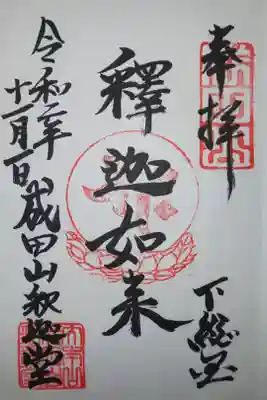 奉拝
下総国
釋迦如来
令和二年
十一月一日
成田山釈迦堂